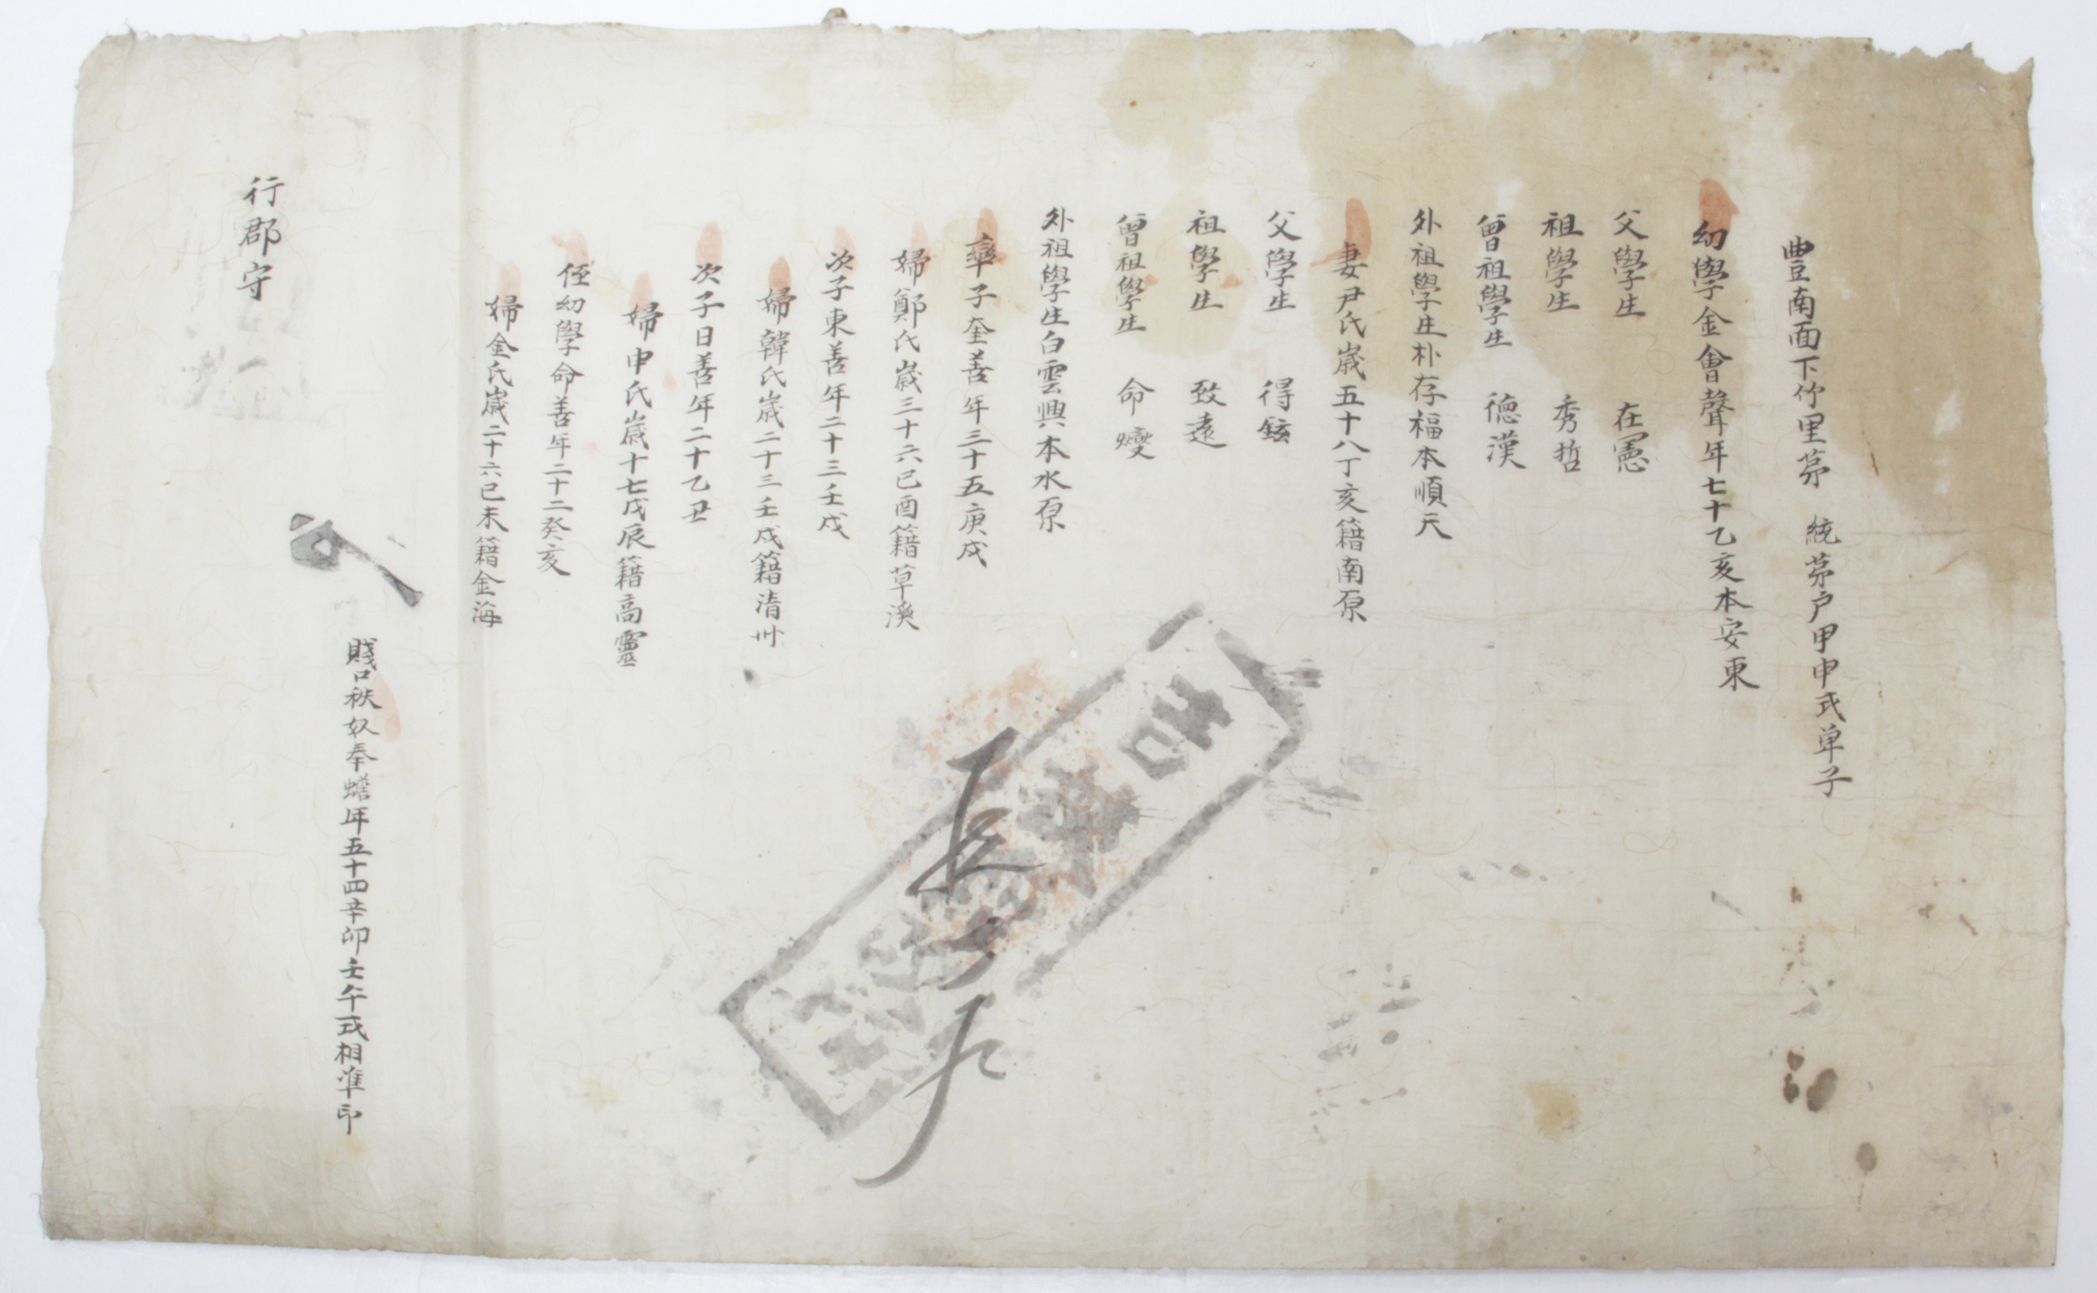 豊南面下竹里苐 統苐户甲申式单子
幼學金會聲年七十乙亥本安東
父學生 在憲
祖學生 秀哲
曽祖學生 德漢
外祖學生朴存福本順天
妻尹氏歲五十八丁亥籍南原
父學生 得鉉
祖學生 致遠
曽祖學生 命燮
外祖學生白雲興本水原
率子奎善年三十五庚戌
婦鄭氏歲三十六己酉籍草溪
次子東善年二十三壬戌
婦韓氏歲二十三壬戌籍清州
次子日善年二十乙丑
婦申氏歲十七戊辰籍高靈
侄幼學命善年二十二癸亥
婦金氏歲二十六己未籍金海
賤口秩奴奉蟾年五十四辛卯壬午式相準印
行郡守